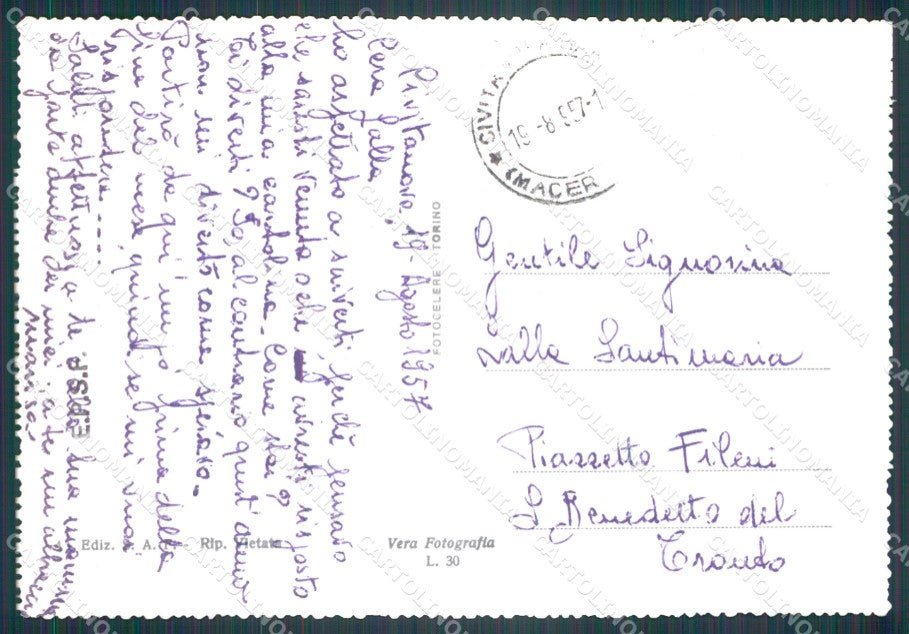 Civitanova, 19 Agosto 1957
Cara Lalla
ho aspettato a scriverti perché pensavo
che saresti venuta o che avresti risposto
alla mia cartolina. Come stai?
Ti diverti? Io al contrario quest'anno
non mi diverto come speravo.
Partirò da qui un po' prima della
fine del mese quindi se mi vuoi
rispondere....
Saluti affettuosi a te alla tua mamma
da parte della mia a te un abbraccio
Marisa
E.P.S.P.
Ediz. A. Rip. Vietata
FOTOCELERE TORINO
Vera Fotografia
L. 30
CIVITA
19-8 957-1
(MACER
Gentile Signorina
Lalla Santimaria
Piazzetto Fileni
S. Benedetto del
Tronto
CARTOLINOMANIA